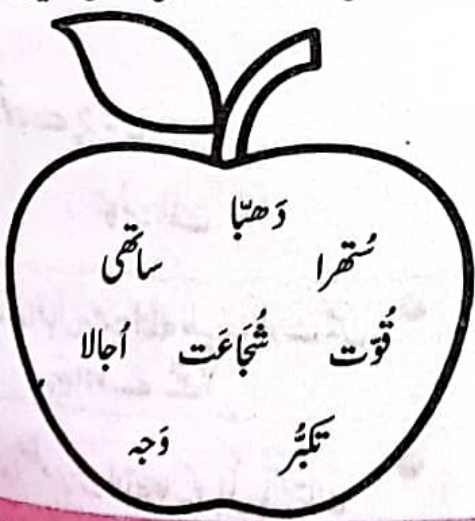 دَھبّا
سُتھرا ساتھی
قُوّت شُجَاعَت اُجالا
تَکبُّر وَجہ